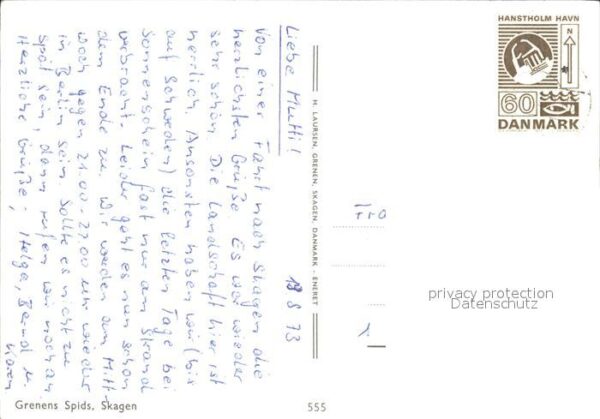 HANSTHOLM HAVN
N
60
DANMARK
Liebe Mutti!
Von einer Fahrt nach Skagen die
herzlichsten Grüße. Es war wieder
sehr schön. Die Landschaft hier ist
herrlich. Ansonsten haben wir (bis
auf Schweden) die letzten Tage bei
Sonnenschein fast nur am Strand
verbracht. Leider geht es nun schon
dem Ende zu. Wir werden am Mitt-
woch gegen 21.00 - 22.00 Uhr wieder
in Berlin sein. Sollte es nicht zu
spät sein, dann rufen wir noch an.
Herzliche Grüße, Helga, Bernd u.
Karen
H. LAURSEN, GRENEN, SKAGEN, DANMARK - ENERET
8 73
privacy protection
Datenschutz
Grenens Spids, Skagen
555